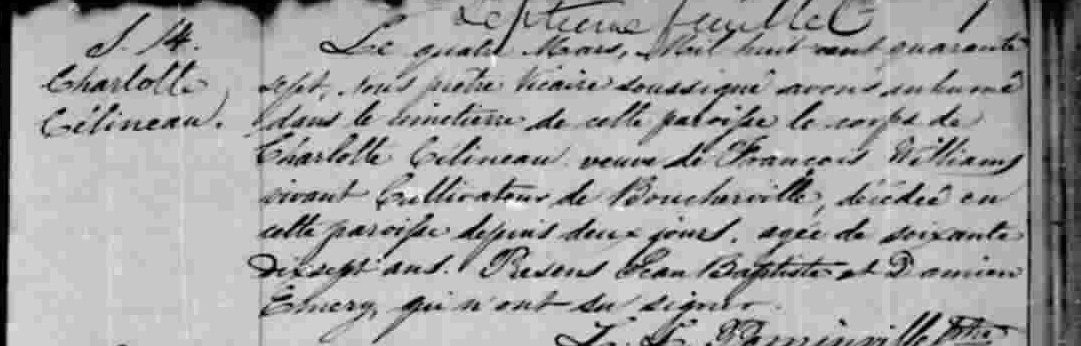 Septieme feuillet
S. 14.
Charlotte
Célineau.
Le quatre Mars, Mil huit cent quarante
sept, nous pretre Vicaire soussigné avons inhumé
dans le cimetierre de cette paroisse le corps de
Charlotte Célineau veuve de François Williams
vivant Cultivateur de Boucherville, décédée en
cette paroisse depuis deux jours. agée de soixante
dix sept ans. Présens Jean Baptiste et Damien
Emery, qui n'ont su signer.
Ptre